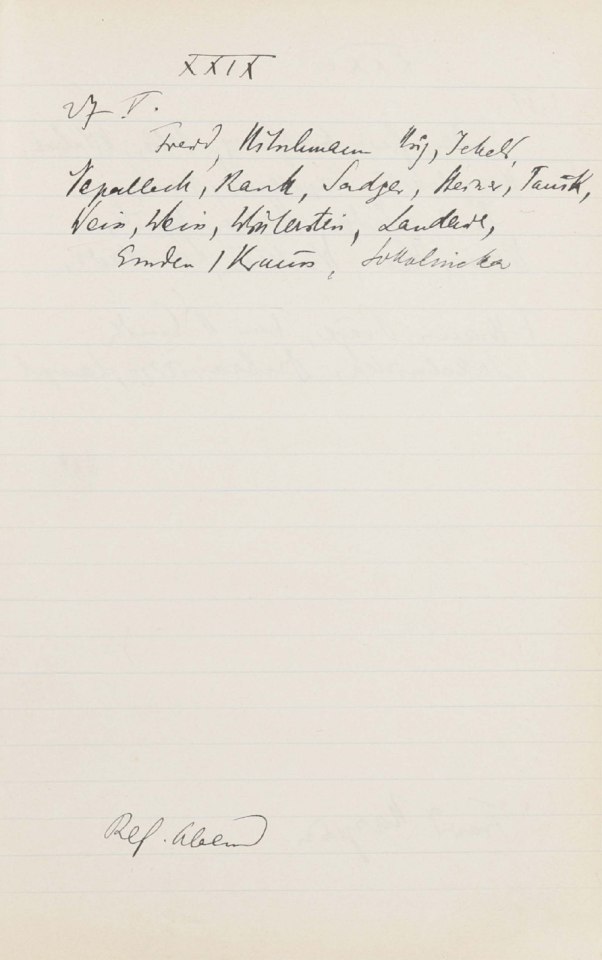 XXIX
27 V.
Freud, Hitschmann Hug, Jekels,
Nepalleck, Rank, Sadger, Steiner, Tausk,
Weiss, Weiss, Winterstein, Landauer,
Emden / Krauss, Sokolnicka
Ref. Abend